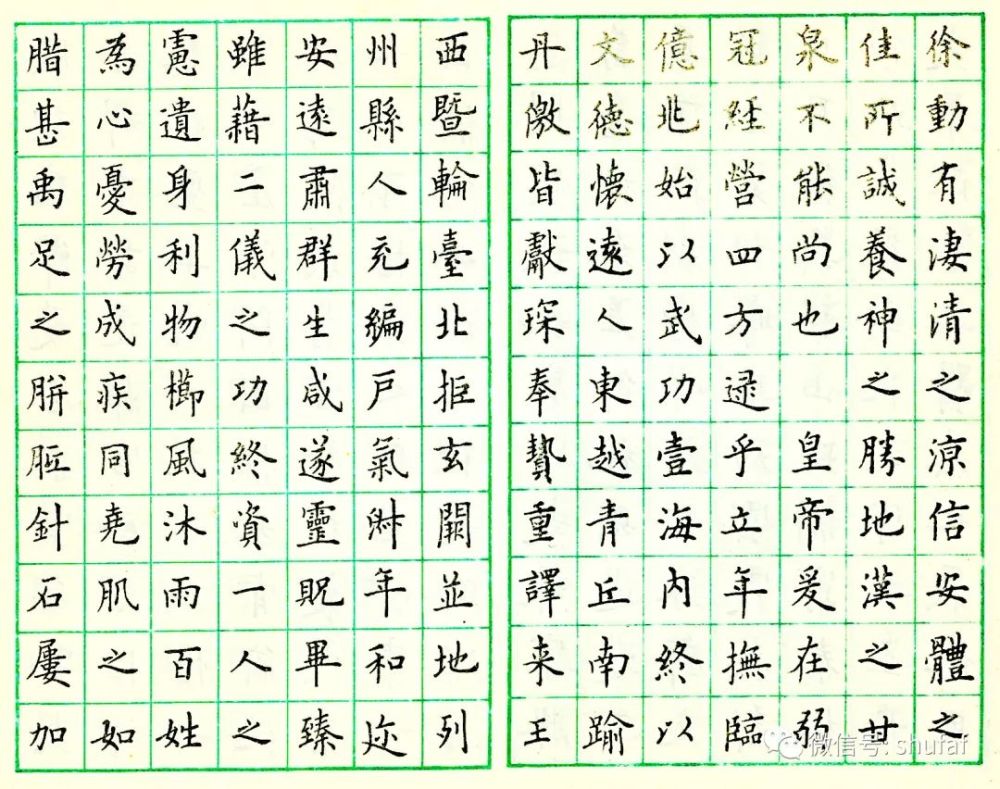 徐動有淒清之涼信安體之
佳所誠養神之勝地漢之甘
泉不能尚也 皇帝爰在弱
冠經營四方逯乎立年撫臨
億兆始以武功壹海內終以
文德懷遠人東越青丘南踰
丹徼皆獻琛奉贄重譯来王
西暨輪臺北拒玄闕並地列
州縣人充編戶氣舛年和迩
安遠肅群生咸遂靈貺畢臻
雖藉二儀之功終資一人之
慮遺身利物櫛風沐雨百姓
為心憂勞成疾同堯肌之如
腊甚禹足之胼胝針石屢加
微信号: shufaf